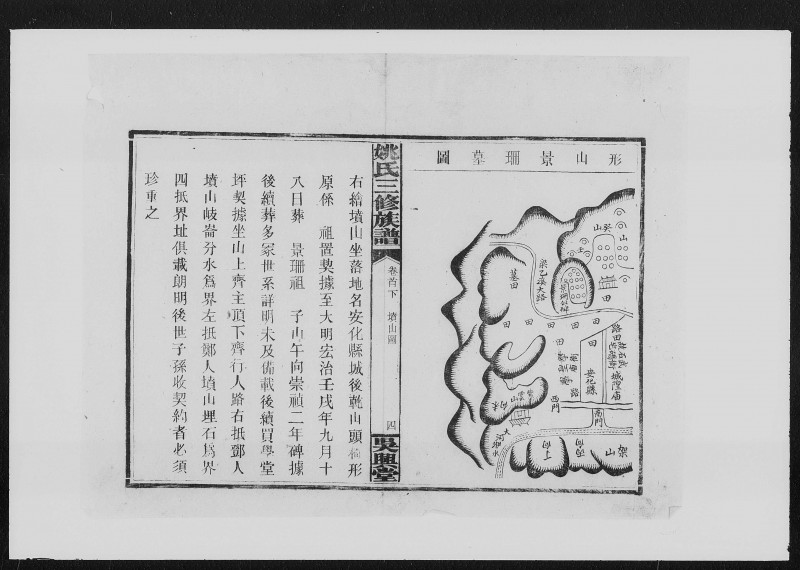 形山景珊墓圖
癸山
山
壬
梁乙溪大路
墓田
田
田
田
田
田
田
田
路田
城隍廟
安化縣
路
西門
南門
大河
架山
姚氏三修族譜
卷首下
墳山圖
四
吳興堂
右繪墳山坐落地名安化縣城後乾山頭 形
原係 祖置契據至大明宏治壬戌年九月十
八日葬 景珊祖 子山午向崇禎二年碑據
後續葬多冢世系詳明未及備載後續買學堂
坪契據坐山上齊主頂下齊行人路右抵鄧人
墳山岐崙分水爲界左抵鄭人墳山埋石爲界
四抵界址俱載朗明後世子孫收契約者必須
珍重之